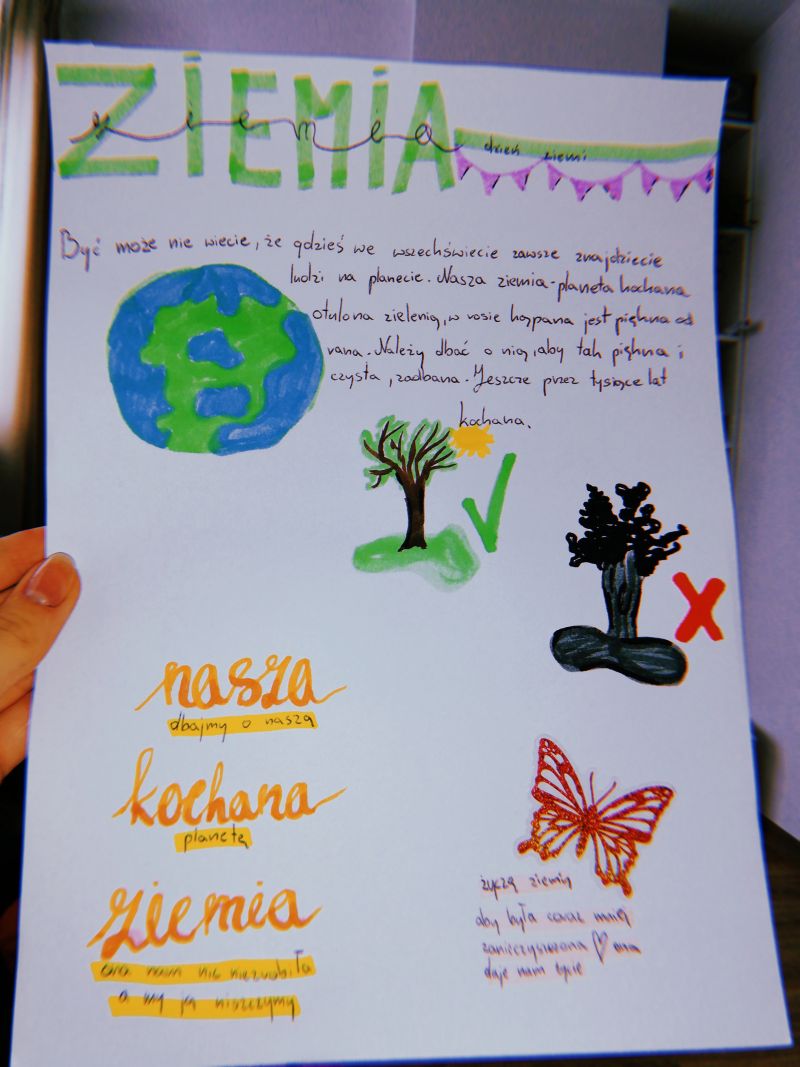 ZIEMIA
ziemia
dzień ziemi
Być może nie wiecie, że gdzieś we wszechświecie zawsze znajdziecie
ludzi na planecie. Nasza ziemia-planeta kochana
otulona zielenią, w rosie kąpana jest piękna od
rana. Należy dbać o nią, aby tak piękna i
czysta, zadbana. Jeszcze przez tysiące lat
kochana.
nasza
dbajmy o naszą
kochana
planetę
ziemia
ona nam nic niezrobiła
a my ją niszczymy
życzę ziemią
aby była coraz mniej
zanieczyszczona ona
daje nam życie